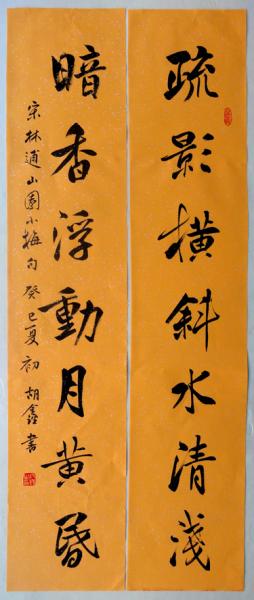 疏影橫斜水清淺
暗香浮動月黃昏
宋林逋山園小梅句 癸巳夏初 胡鑫書